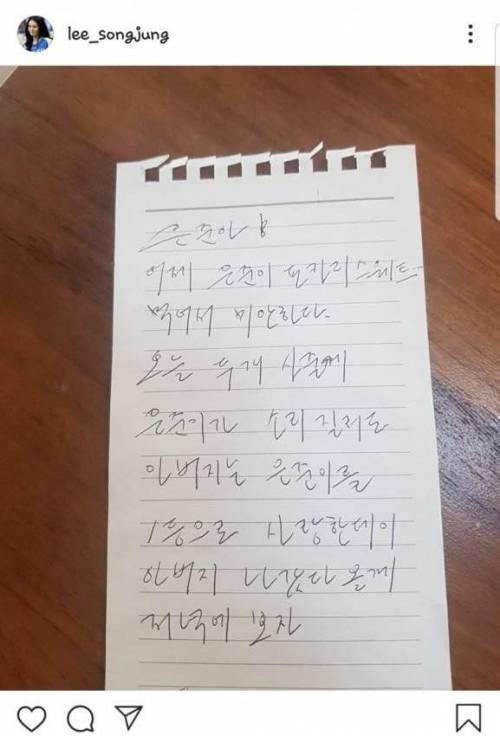 lee_songjung
은준아!
어제 은준이 포카리스웨트
먹어서 미안하다.
오늘 두개 사줄께
은준이가 소리 질러도
아버지는 은준이를
1등으로 사랑한데이
아버지 나갔다 올게
저녁에 보자